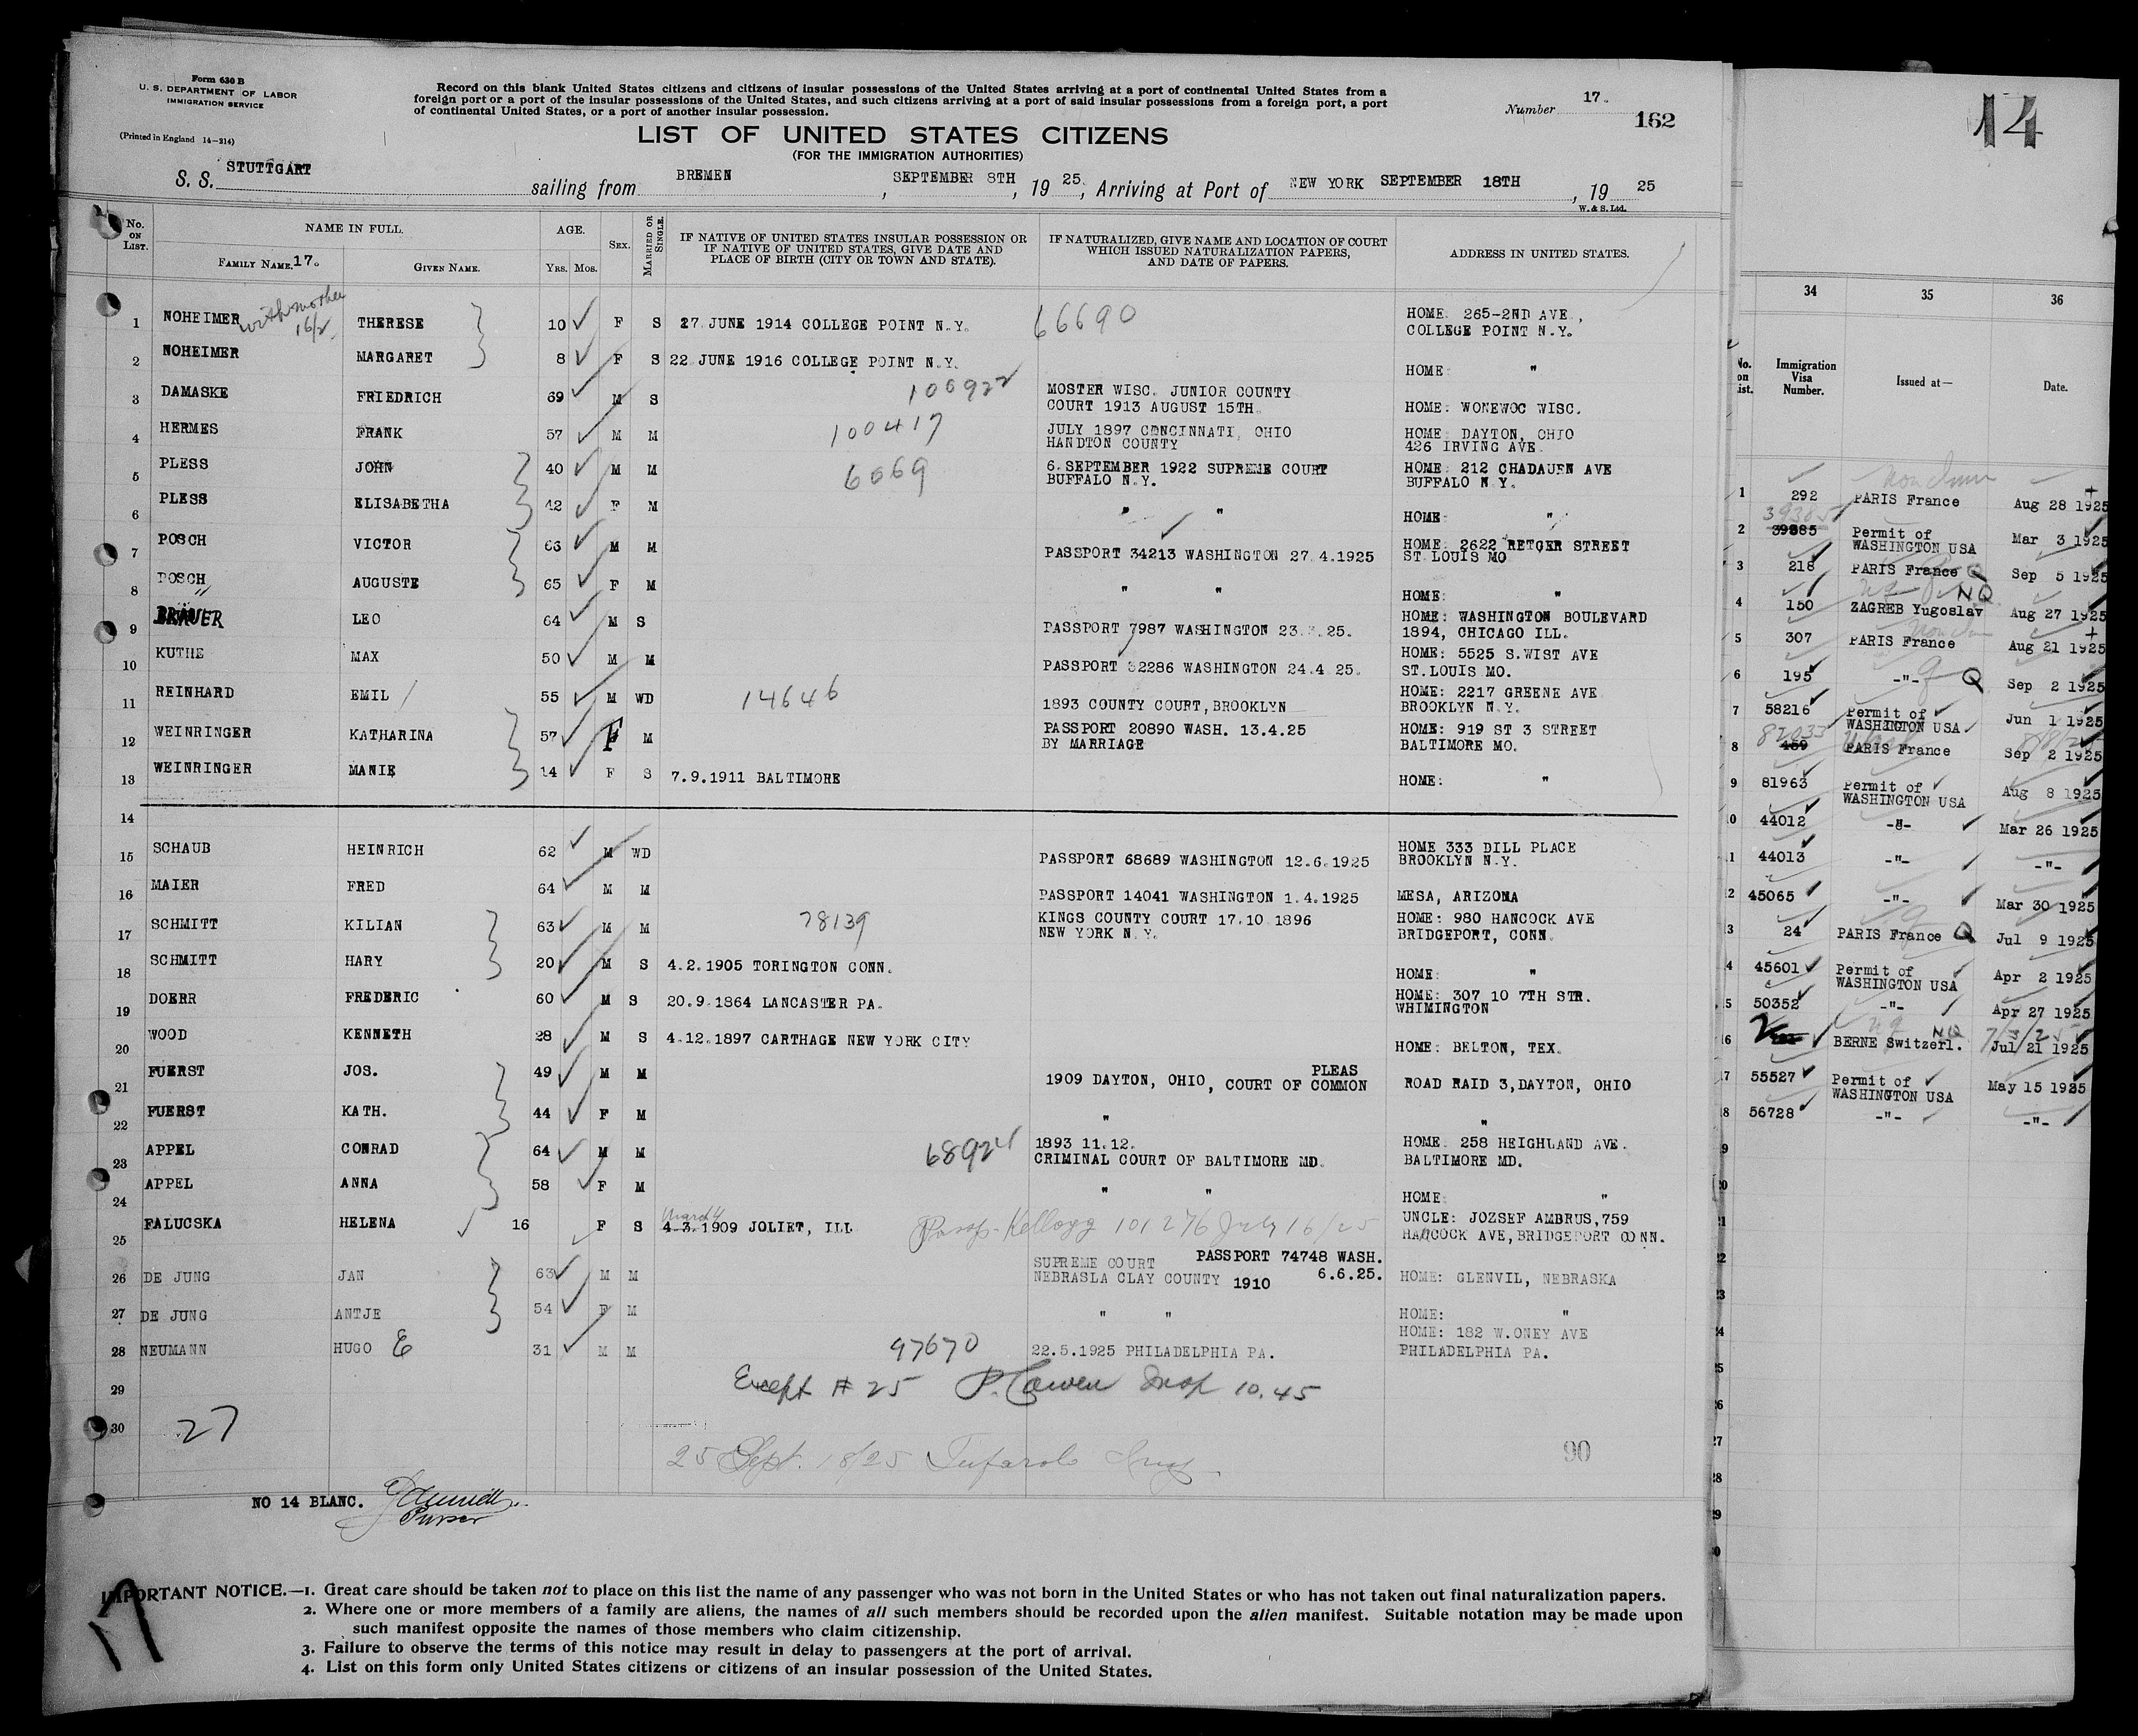 Form 630 B
U. S. DEPARTMENT OF LABOR
IMMIGRATION SERVICE
(Printed in England 14—214)
Record on this blank United States citizens and citizens of insular possessions of the United States arriving at a port of continental United States from a
foreign port or a port of the insular possessions of the United States, and such citizens arriving at a port of said insular possessions from a foreign port, a port
of continental United States, or a port of another insular possession.
Number 17.
162
LIST OF UNITED STATES CITIZENS
(FOR THE IMMIGRATION AUTHORITIES)
S. S. STUTTGART sailing from BREMEN, SEPTEMBER 8TH, 19 25, Arriving at Port of NEW YORK SEPTEMBER 18TH, 19 25
W. & S. Ltd.
No. on List. NAME IN FULL. AGE. Sex. Married or Single. IF NATIVE OF UNITED STATES INSULAR POSSESSION OR IF NATIVE OF UNITED STATES, GIVE DATE AND PLACE OF BIRTH (CITY OR TOWN AND STATE). IF NATURALIZED, GIVE NAME AND LOCATION OF COURT WHICH ISSUED NATURALIZATION PAPERS, AND DATE OF PAPERS. ADDRESS IN UNITED STATES.
Family Name. 17. Given Name. Yrs. Mos.
with mother 16/2
1 NOHEIMER THERESE 10 F S 27 JUNE 1914 COLLEGE POINT N.Y. 66690 HOME: 265-2ND AVE, COLLEGE POINT N.Y.
2 NOHEIMER MARGARET 8 F S 22 JUNE 1916 COLLEGE POINT N.Y. HOME "
3 DAMASKE FRIEDRICH 69 M S 100922 MOSTER WISC. JUNIOR COUNTY COURT 1913 AUGUST 15TH. HOME: WONEWOC WISC.
4 HERMES FRANK 57 M M 100417 JULY 1897 CENCINNATI, OHIO HANDTON COUNTY HOME: DAYTON, OHIO 426 IRVING AVE.
5 PLESS JOHN 40 M M 6069 6. SEPTEMBER 1922 SUPREME COURT BUFFALO N.Y. HOME: 212 CHADAUEN AVE BUFFALO N.Y.
6 PLESS ELISABETHA 42 F M " " HOME "
7 POSCH VICTOR 66 M M PASSPORT 34213 WASHINGTON 27.4.1925 HOME: 2622 RETGER STREET ST LOUIS MO
8 POSCH AUGUSTE 65 F M " " HOME: "
9 BRAUER LEO 64 M S PASSPORT 7987 WASHINGTON 23. .25. HOME: WASHINGTON BOULEVARD 1894, CHICAGO ILL.
10 KUTHE MAX 50 M M PASSPORT 32286 WASHINGTON 24.4 25. HOME: 5525 S.WIST AVE ST.LOUIS MO.
11 REINHARD EMIL 55 M WD 14646 1893 COUNTY COURT, BROOKLYN HOME: 2217 GREENE AVE BROOKLYN N.Y.
12 WEINRINGER KATHARINA 57 F M PASSPORT 20890 WASH. 13.4.25 BY MARRIAGE HOME: 919 ST 3 STREET BALTIMORE MO.
13 WEINRINGER MANIE 14 F S 7.9.1911 BALTIMORE HOME: "
14
15 SCHAUB HEINRICH 62 M WD PASSPORT 68689 WASHINGTON 12.6.1925 HOME 333 DILL PLACE BROOKLYN N.Y.
16 MAIER FRED 64 M M PASSPORT 14041 WASHINGTON 1.4.1925 MESA, ARIZONA
17 SCHMITT KILIAN 63 M M 78139 KINGS COUNTY COURT 17.10 1896 NEW YORK N.Y. HOME: 980 HANCOCK AVE BRIDGEPORT, CONN.
18 SCHMITT HARY 20 M S 4.2.1905 TORINGTON CONN. HOME: "
19 DOERR FREDERIC 60 M S 20.9.1864 LANCASTER PA. HOME: 307 10 7TH STR. WHIMINGTON
20 WOOD KENNETH 28 M S 4.12.1897 CARTHAGE NEW YORK CITY HOME: BELTON, TEX.
21 FUERST JOS. 49 M M 1909 DAYTON, OHIO, COURT OF COMMON PLEAS ROAD RAID 3, DAYTON, OHIO
22 FUERST KATH. 44 F M " "
23 APPEL CONRAD 64 M M 68924 1893 11.12. CRIMINAL COURT OF BALTIMORE MD. HOME: 258 HEIGHLAND AVE. BALTIMORE MD.
24 APPEL ANNA 58 F M " " HOME "
25 FALUCSKA HELENA 16 F S March 4 4.3.1909 JOLIET, ILL Passp. Kellogg 101276 July 16/25 UNCLE: JOZSEF AMBRUS, 759 HANCOCK AVE, BRIDGEPORT CONN.
26 DE JUNG JAN 63 M M SUPREME COURT NEBRASLA CLAY COUNTY 1910 PASSPORT 74748 WASH. 6.6.25. HOME: GLENVIL, NEBRASKA
27 DE JUNG ANTJE 54 F M " " HOME: "
28 NEUMANN HUGO E 31 M M 97670 22.5.1925 PHILADELPHIA PA. HOME: 182 W.ONEY AVE PHILADELPHIA PA.
29 Except # 25 P. Cowen Insp 10.45
30
27
25 Sept. 18/25 Insp.
90
NO 14 BLANC. Purser
17
IMPORTANT NOTICE.—1. Great care should be taken not to place on this list the name of any passenger who was not born in the United States or who has not taken out final naturalization papers.
2. Where one or more members of a family are aliens, the names of all such members should be recorded upon the alien manifest. Suitable notation may be made upon
such manifest opposite the names of those members who claim citizenship.
3. Failure to observe the terms of this notice may result in delay to passengers at the port of arrival.
4. List on this form only United States citizens or citizens of an insular possession of the United States.
14
34 35 36
No. on List. Immigration Visa Number. Issued at— Date.
1 292 PARIS France Aug 28 1925
2 39385 Permit of WASHINGTON USA Mar 3 1925
3 218 PARIS France Q Sep 5 1925
4 150 ZAGREB Yugoslav NQ Aug 27 1925
5 307 PARIS France Aug 21 1925
6 195 -"- Q Sep 2 1925
7 58216 Permit of WASHINGTON USA Jun 1 1925
8 459 PARIS France Sep 2 1925
9 81963 Permit of WASHINGTON USA Aug 8 1925
10 44012 -"- Mar 26 1925
11 44013 -"- -"-
12 45065 -"- Mar 30 1925
13 24 PARIS France Q Jul 9 1925
14 45601 Permit of WASHINGTON USA Apr 2 1925
15 50352 -"- Apr 27 1925
16 BERNE Switzerl. NQ Jul 21 1925
17 55527 Permit of WASHINGTON USA May 15 1925
18 56728 -"- -"-
19
20
21
22
23
24
25
26
27
28
29
30